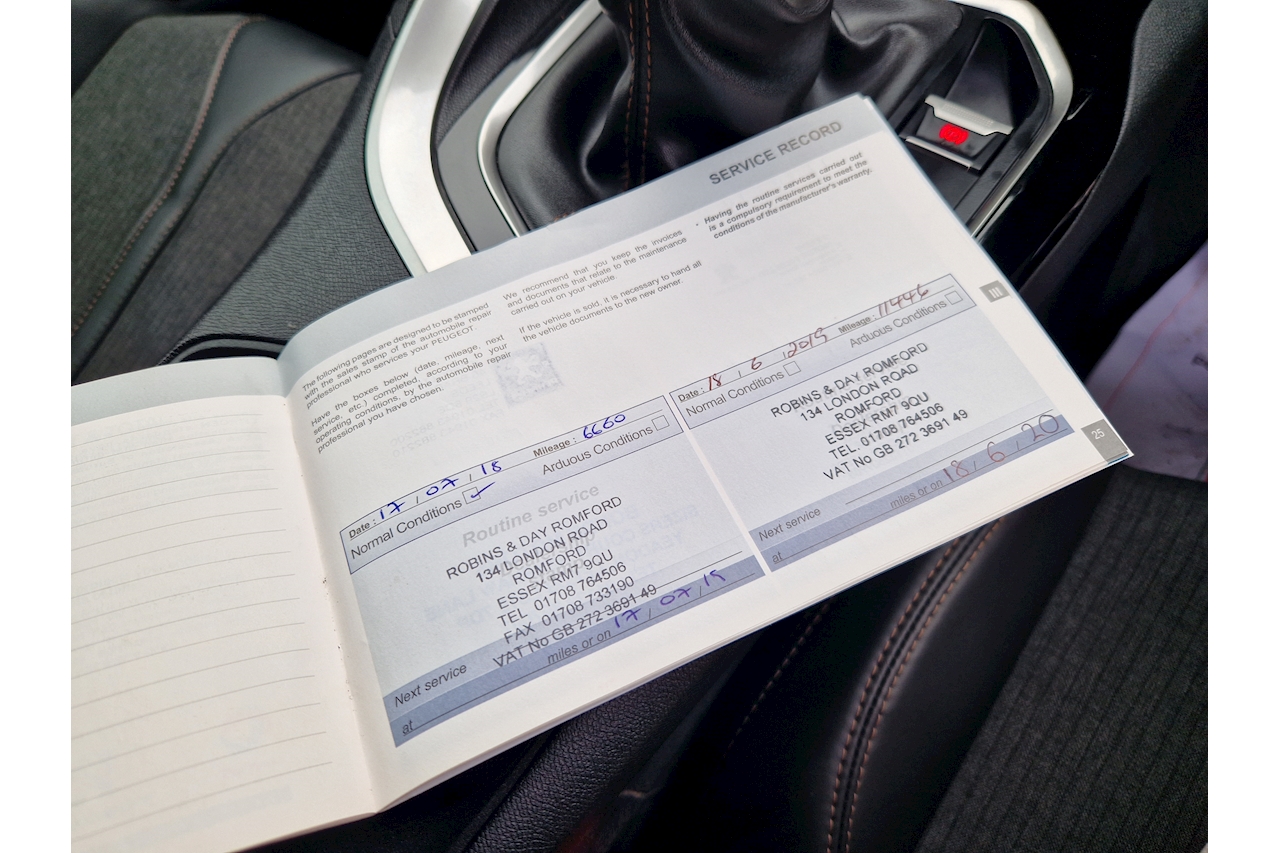 SERVICE RECORD
The following pages are designed to be stamped
with the sales stamp of the automobile repair
professional who services your PEUGEOT.
Have the boxes below (date, mileage, next
service, etc.) completed, according to your
operating conditions, by the automobile repair
professional you have chosen.
We recommend that you keep the invoices
and documents that relate to the maintenance
carried out on your vehicle.
If the vehicle is sold, it is necessary to hand all
the vehicle documents to the new owner.
• Having the routine services carried out
is a compulsory requirement to meet the
conditions of the manufacturer's warranty.
Date: 17 / 07 / 18 Mileage: 6660
Normal Conditions Arduous Conditions
Routine service
ROBINS & DAY ROMFORD
134 LONDON ROAD
ROMFORD
ESSEX RM7 9QU
TEL 01708 764506
FAX 01708 733190
VAT No GB 272 3691 49
Next service
at miles or on 17 / 07 / 19
Date: 18 / 6 / 2019 Mileage: 11446
Normal Conditions Arduous Conditions
ROBINS & DAY ROMFORD
134 LONDON ROAD
ROMFORD
ESSEX RM7 9QU
TEL. 01708 764506
VAT No GB 272 3691 49
Next service
at miles or on 18 / 6 / 20
III
25